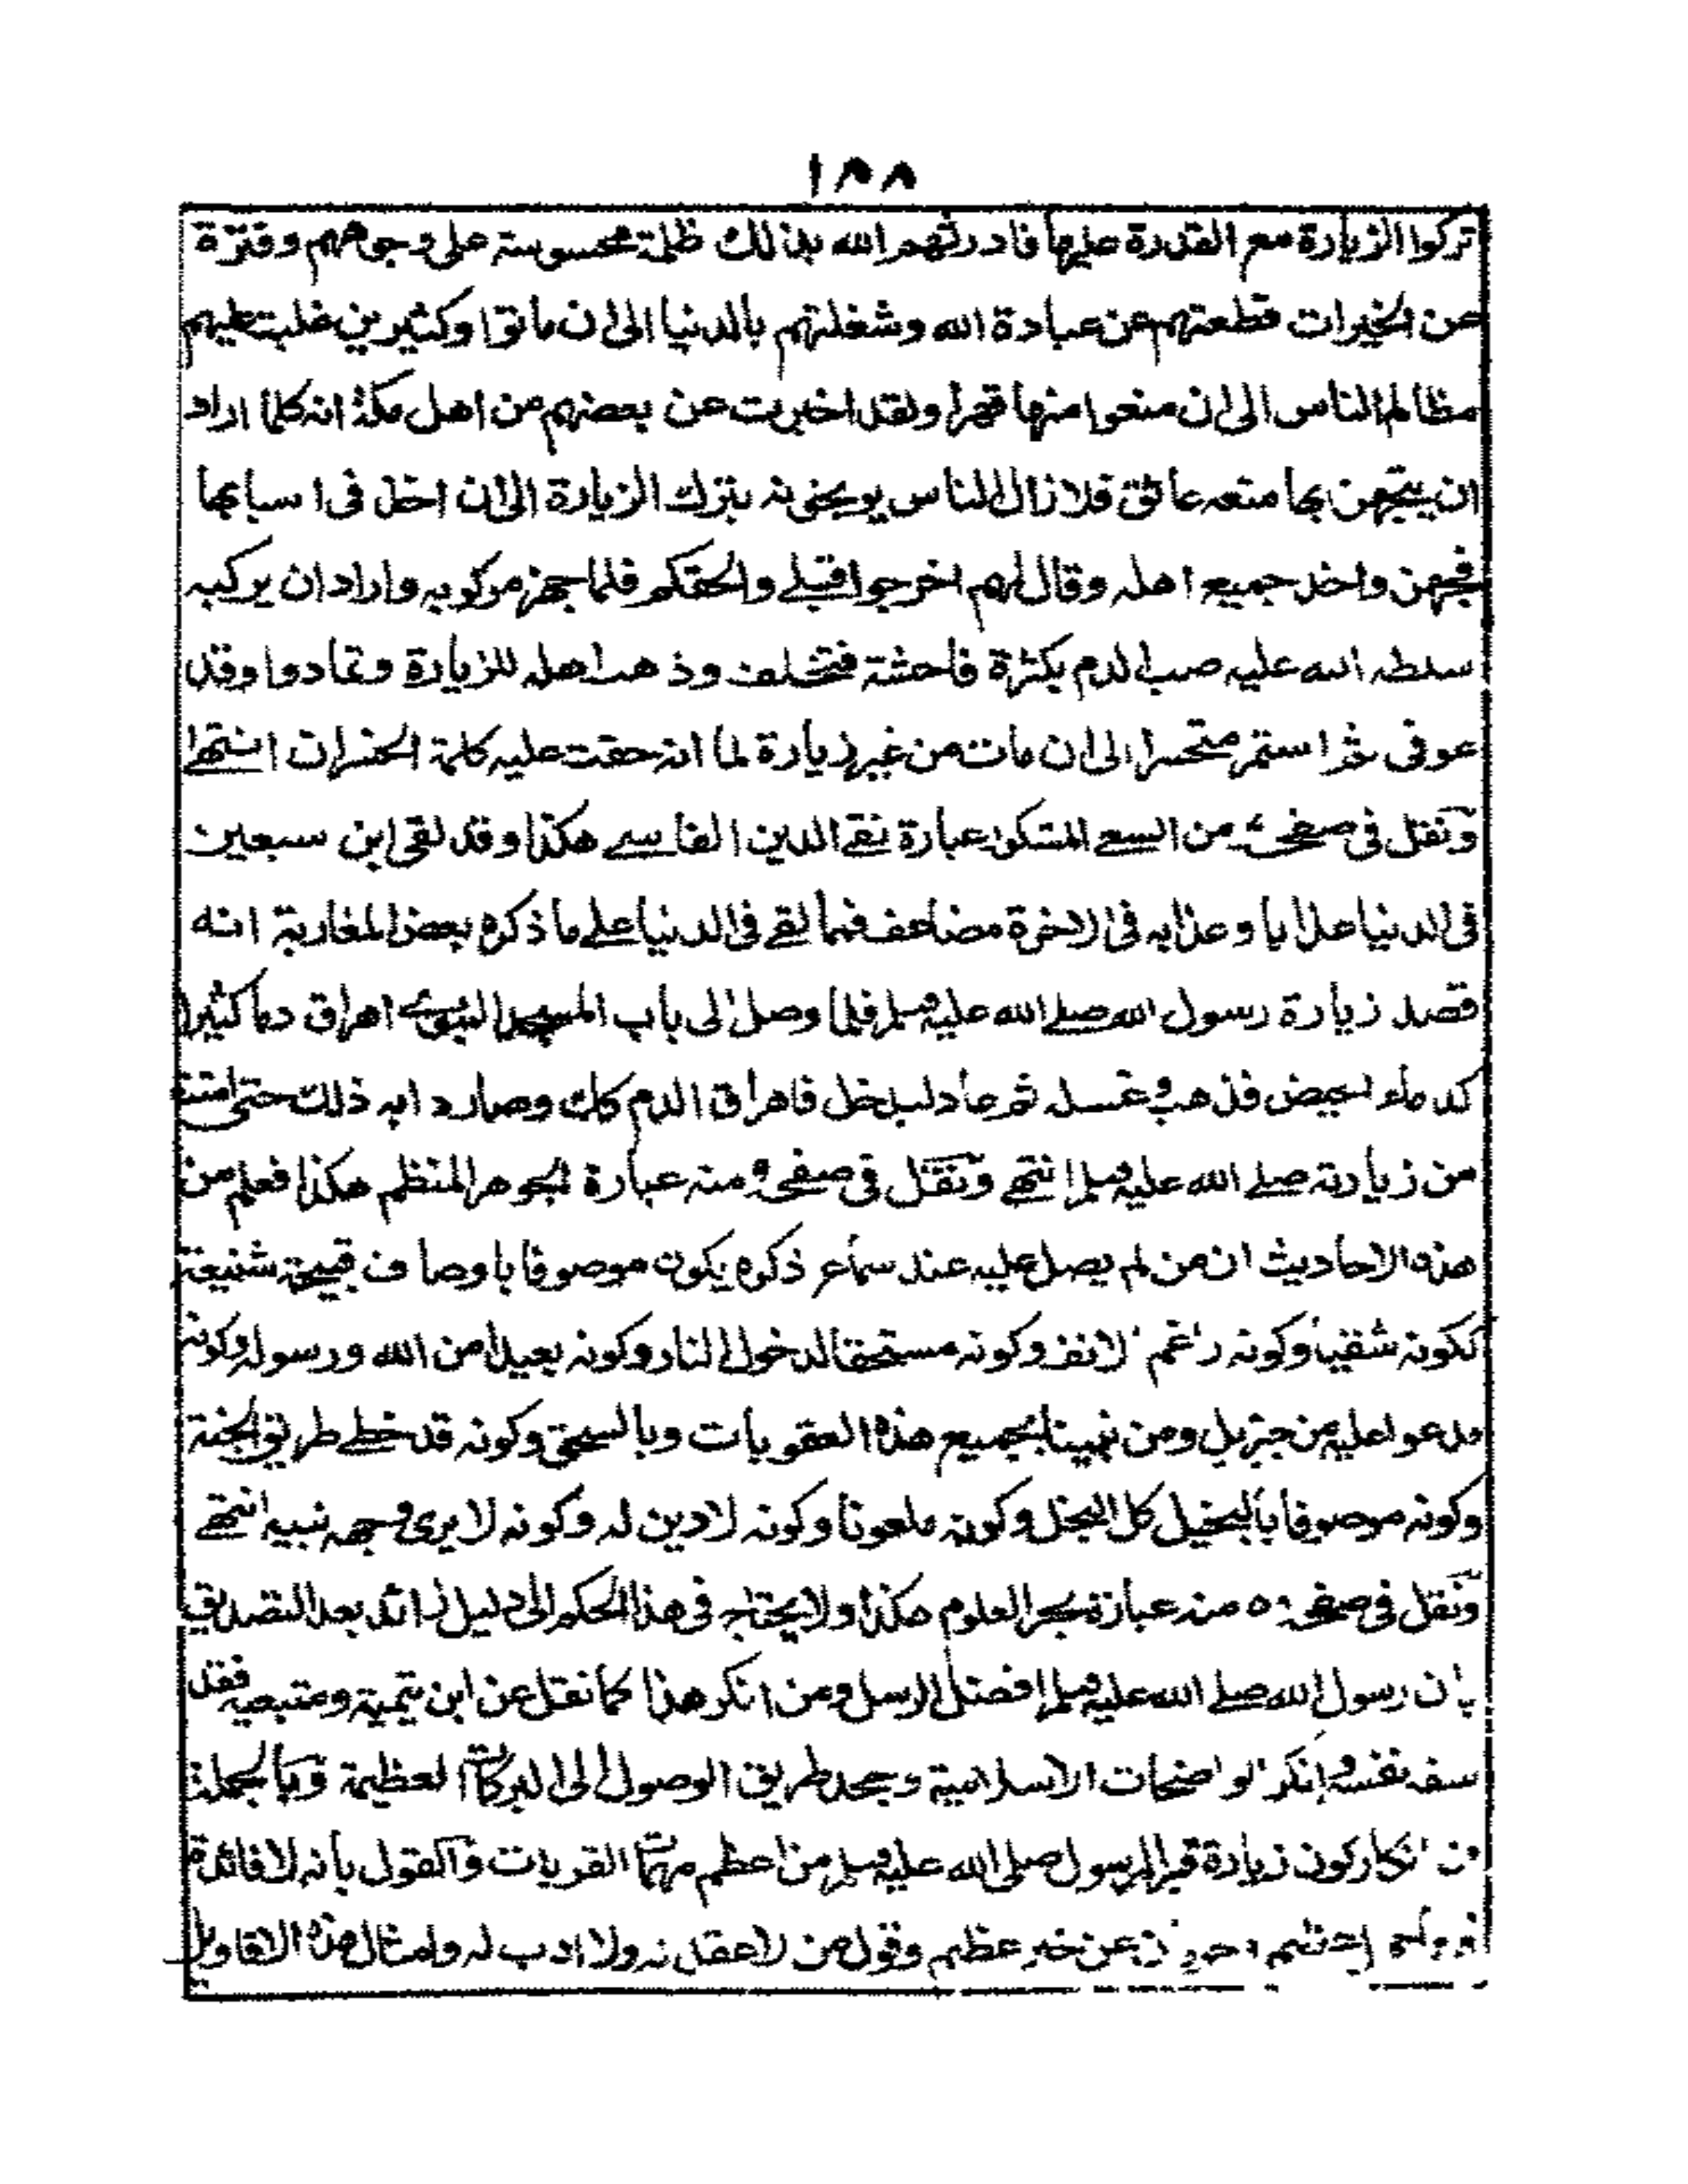 ١٨٨
تركوا الزيارة مع القدرة عليها فادرثهم الله بذالك ظلمة محسوسة على وجوههم وفترة
عن الخيرات قطعتهم عن عبادة الله وشغلتهم بالدنيا الى ان ماتوا وكثيرين غلبت عليهم
مظالم الناس الى ان منعوا منها قهرا ولقد اخبرت عن بعضهم من اهل مكة انه كلما اراد
ان يتجهز بها منعه عائق فلا زال الناس يوبخونه بترك الزيارة الى ان اخذ فى اسبابها
فجهز واخذ جميع اهله وقال لهم اخرجوا قبلے والحقكم فلما جهز مركوبه واراد ان يركبه
سلطه الله عليه صب الدم بكثرة فاحشة فتخلف وذهب اهله للزيارة وتمادوا وقد
عوفى ثم استمر متحسرا الى ان مات من غير زيارة لما انه حقت عليه كلمة الخسران انتهے
ونقل فى صفحة من السعے المشكور عبارة تقے الدين الفاسے هكذا وقد لقى ابن سبعين
فى الدنيا عذابا وعذابه فى الاخرة مضاعف فمما لقے فى الدنيا علے ما ذكره بعض المغاربة انه
قصد زيارة رسول الله صلے الله عليه وسلم فلما وصل الى باب المسجد النبوے اهراق دما كثيرا
كدماء الحيض فذهب وغسله ثم عاد ليدخل فاهراق الدم كك وصار دابه ذلك حتى امتنع
من زيارته صلے الله عليه وسلم انتهے ونقل فى صفحة منه عبارة الجوهر المنظم هكذا فعلم من
هذه الاحاديث ان من لم يصل عليه عند سماع ذكره يكون موصوفا باوصاف قبيحة شنيعة
ككونه شقيا وكونه راغم الانف وكونه مستحقا لدخول النار وكونه بعيدا من الله ورسوله وكونه
مدعوا عليه من جبريل ومن نبينا بجميع هذه العقوبات وبالسحق وكونه قد خطے طريق الجنة
وكونه موصوفا بالبخيل كل البخل وكونه ملعونا وكونه لا دين له وكونه لا يرى وجه نبيه انتهے
ونقل فى صفحة ٥٠ منه عبارة بحر العلوم هكذا ولا يحتاج فى هذا الحكم الى دليل زائد بعد التصديق
بان رسول الله صلے الله عليه وسلم افضل الرسل ومن انكر هذا كما نقل عن ابن تيمية ومتبعيه فقد
سفه نفسه وانكر الواضحات الاسلامية وجحد طريق الوصول الى البركات العظيمة وبالجملة
من انكار كون زيارة قبر الرسول صلى الله عليه وسلم من اعظم مهمات القربات والقول بانه لا فائدة
عن خير عظيم وقول من لا عقل له ولا ادب له وامثال هذه الاقاويل